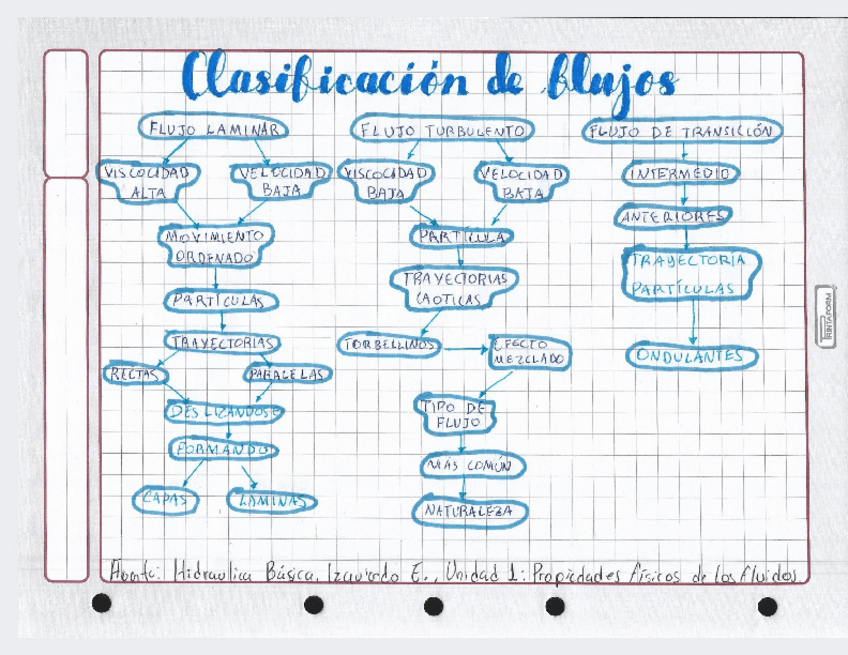 Clasificación de flujos
FLUJO LAMINAR
VISCOCIDAD
ALTA
VELOCIDAD
BAJA
MOVIMIENTO
ORDENADO
PARTÍCULAS
TRAYECTORIAS
RECTAS
PARALELAS
DESLIZANDOSE
FORMANDO
CAPAS
LAMINAS
FLUJO TURBULENTO
VISCOCIDAD
BAJA
VELOCIDAD
BAJA
PARTÍCULA
TRAYECTORIAS
CAOTICAS
TORBELLINOS
EFECTO
MEZCLADO
TIPO DE
FLUJO
MÁS COMÚN
NATURALEZA
FLUJO DE TRANSICIÓN
INTERMEDIO
ANTERIORES
TRAYECTORIA
PARTÍCULAS
ONDULANTES
PRINTAFORM
Hidraulica Básica, E., Unidad 1: Propiedades físicos de los fluidos